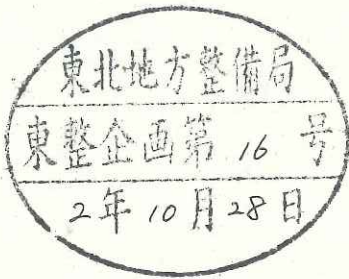 東北地方整備局
東整企画第 16 号
2年 10月 28日